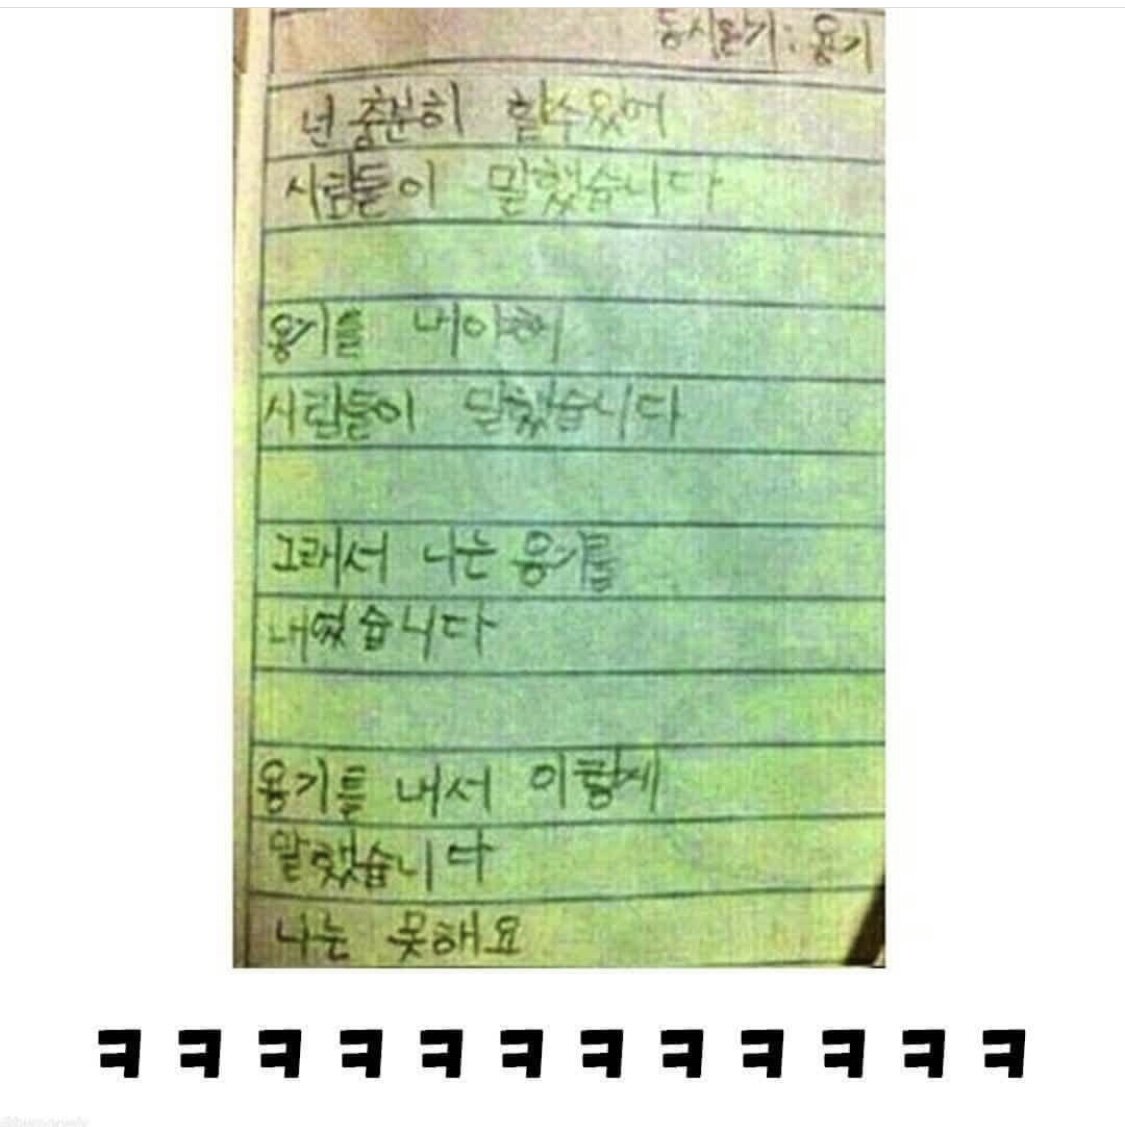 동시일기 : 용기
넌 충분히 할수있어
사람들이 말했습니다
용기를 내야해
사람들이 말했습니다
그래서 나는 용기를
내었습니다
용기를 내서 이렇게
말했습니다
나는 못해요
ㅋㅋㅋㅋㅋㅋㅋㅋㅋㅋㅋㅋ